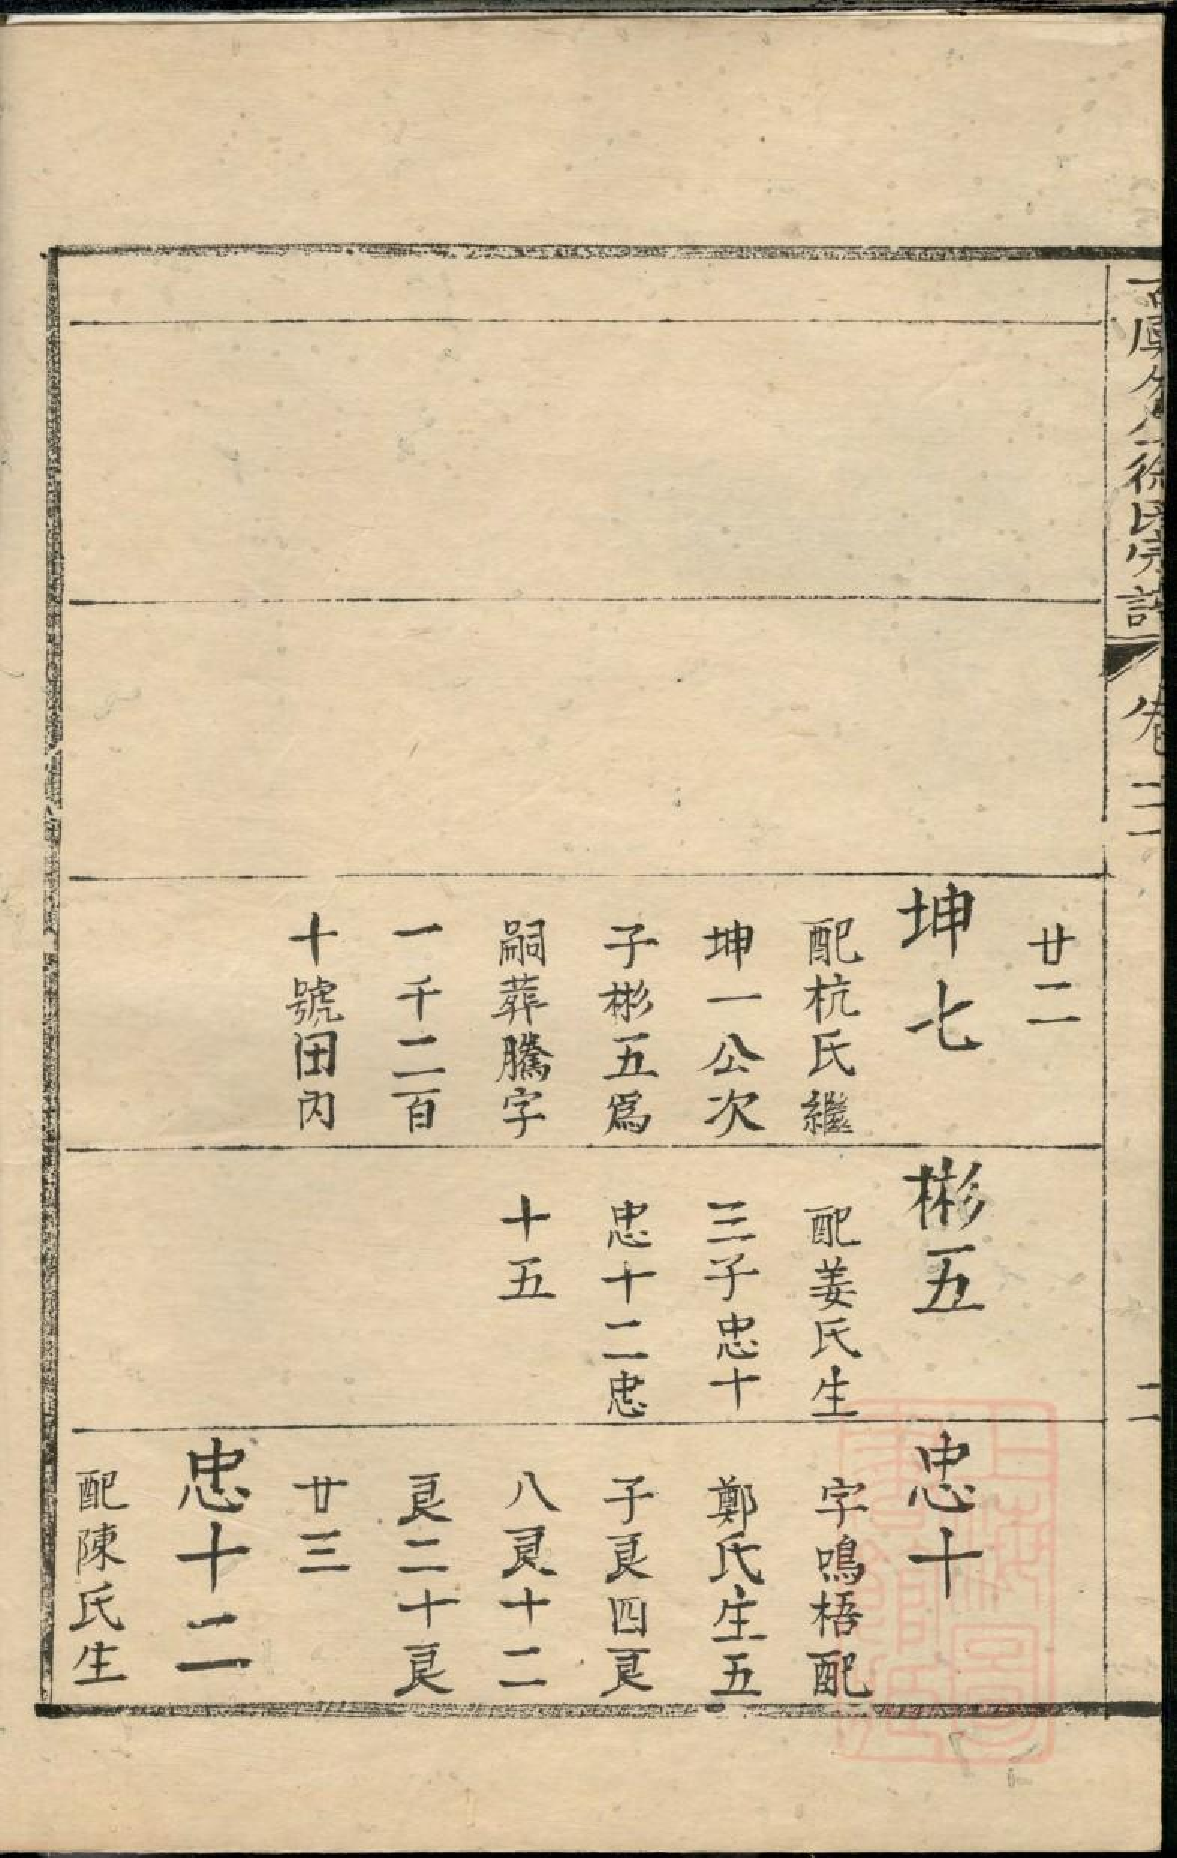 徐氏宗譜
卷
廿二
坤七
配杭氏繼
坤一公次
子彬五爲
嗣葬騰字
一千二百
十號田內
彬五
配姜氏生
三子忠十
忠十二忠
十五
忠十
字鳴梧配
鄭氏生五
子良四良
八良十二
良二十良
廿三
忠十二
配陳氏生